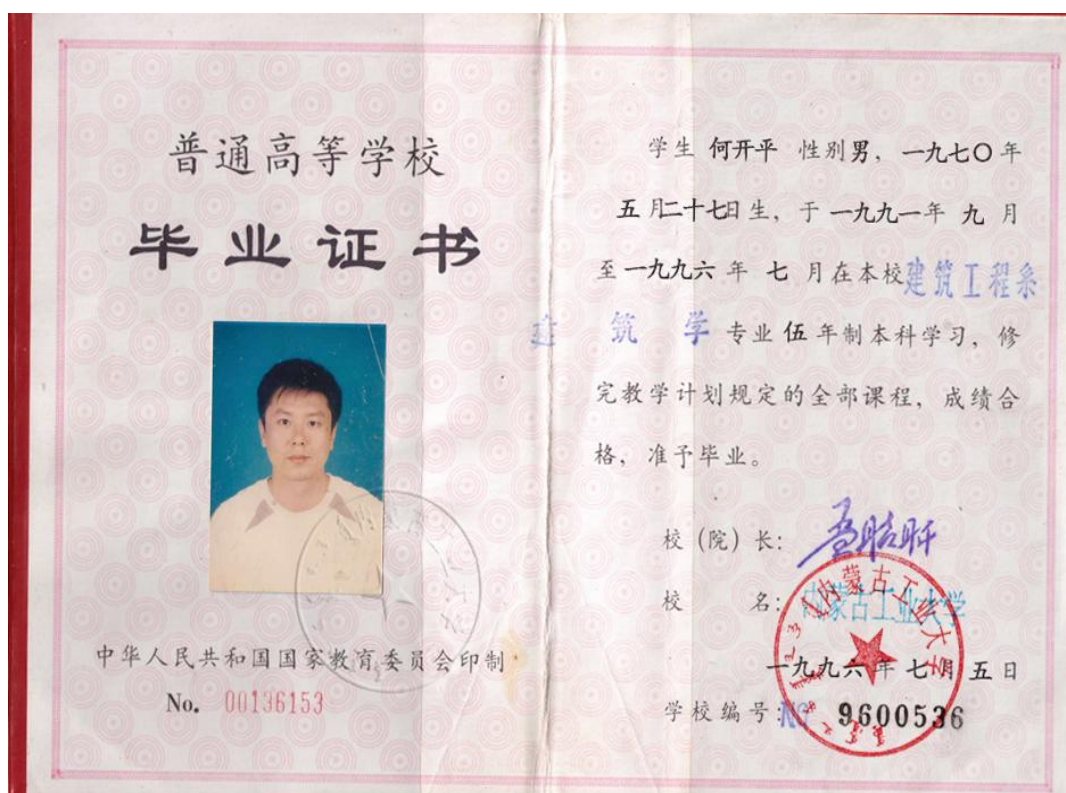 普通高等学校
毕业证书
中华人民共和国国家教育委员会印制
No. 00136153
学生 何开平 性别男，一九七〇年
五月二十七日生，于一九九一年 九 月
至一九九六 年 七 月在本校建筑工程系
建 筑 学 专业 伍 年制本科学习，修
完教学计划规定的全部课程，成绩合
格，准予毕业。
校（院）长：
校 名：内蒙古工业大学
一九九六年七月五日
学校编号：No 9600536
内蒙古工业大学